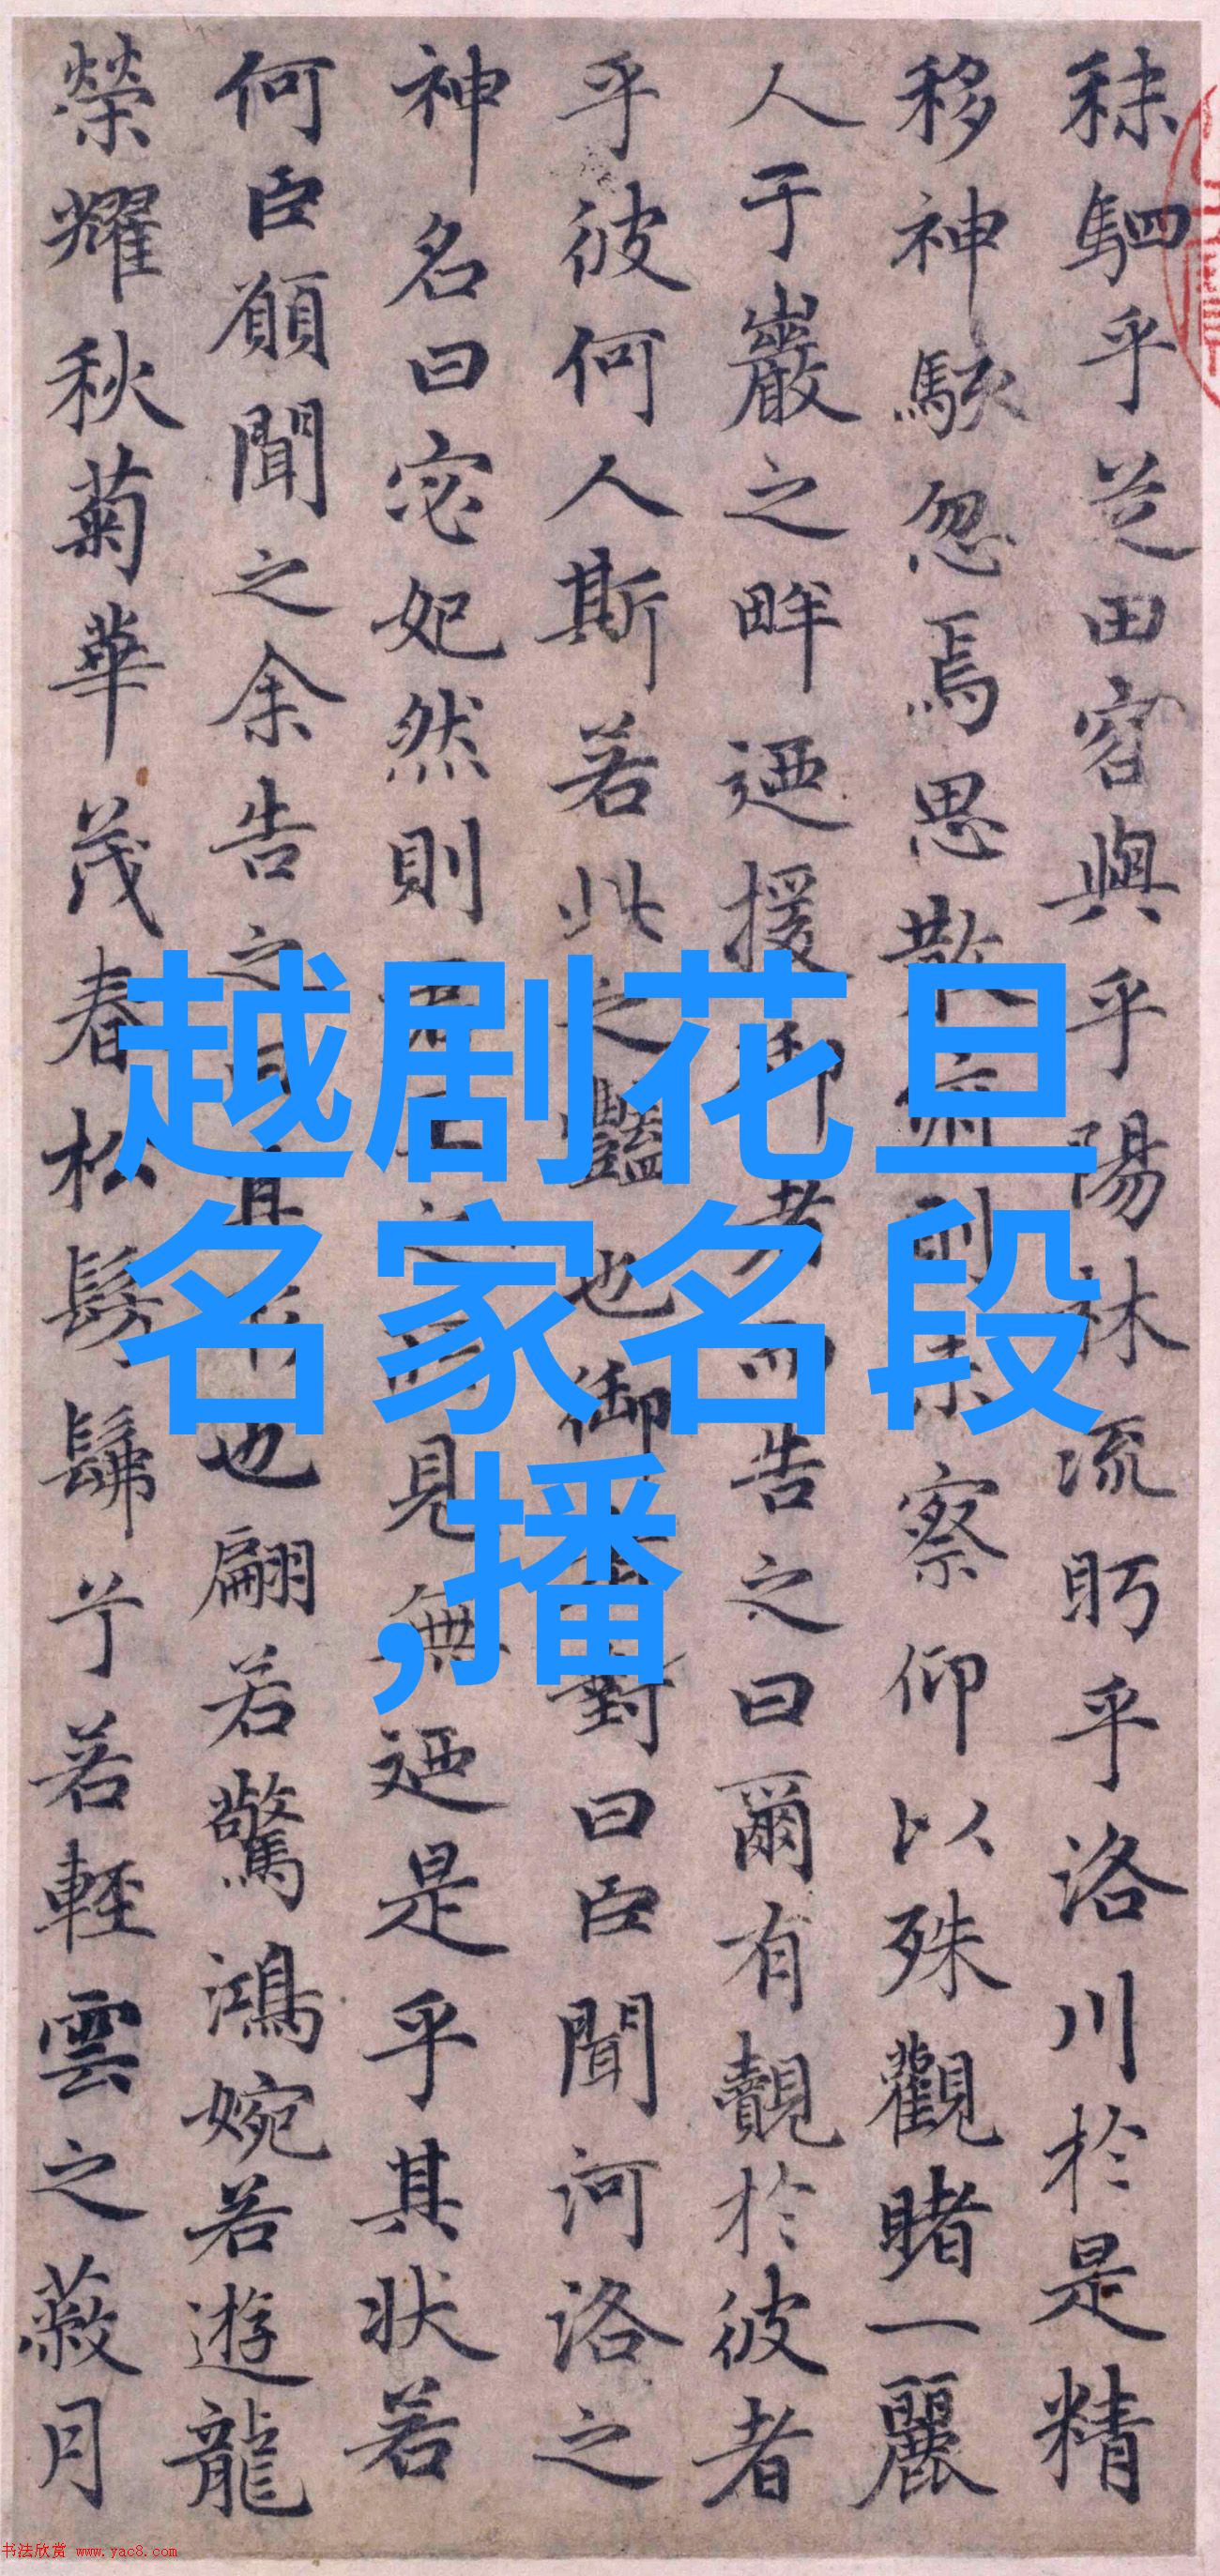 秣駟乎芝田容與乎陽林流眄乎洛川於是精
移神駭忽焉思散俯則未察仰以殊觀睹一麗
人于巖之畔迺援御者而告之曰爾有覿於彼者
乎彼何人斯若此之豔也御者對曰臣聞河洛之
神名曰宓妃然則君王之所見無迺是乎其状若
何臣願聞之余告之曰其形也翩若驚鴻婉若遊龍
榮耀秋菊華茂春松髣髴兮若輕雲之蔽月
越剧花旦
名家名段
,播
书法欣赏 www.yac8.com